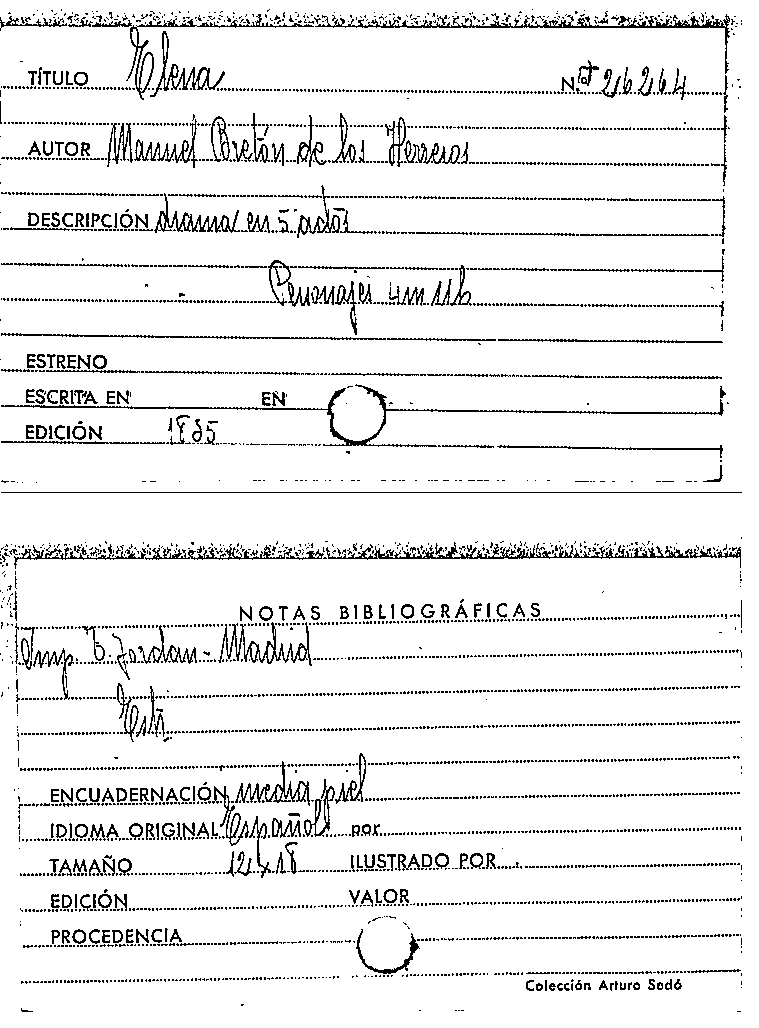 TÍTULO Elena N.º 26264
AUTOR Manuel Bretón de los Herreros
DESCRIPCIÓN drama en 5 actos
Personajes 4m 11h
ESTRENO
ESCRITA EN EN
EDICIÓN 1835
NOTAS BIBLIOGRÁFICAS
Imp. T. Jordan - Madrid
ENCUADERNACIÓN media piel
IDIOMA ORIGINAL Español por
TAMAÑO 12x18 ILUSTRADO POR
EDICIÓN VALOR
PROCEDENCIA
Colección Arturo Sedó